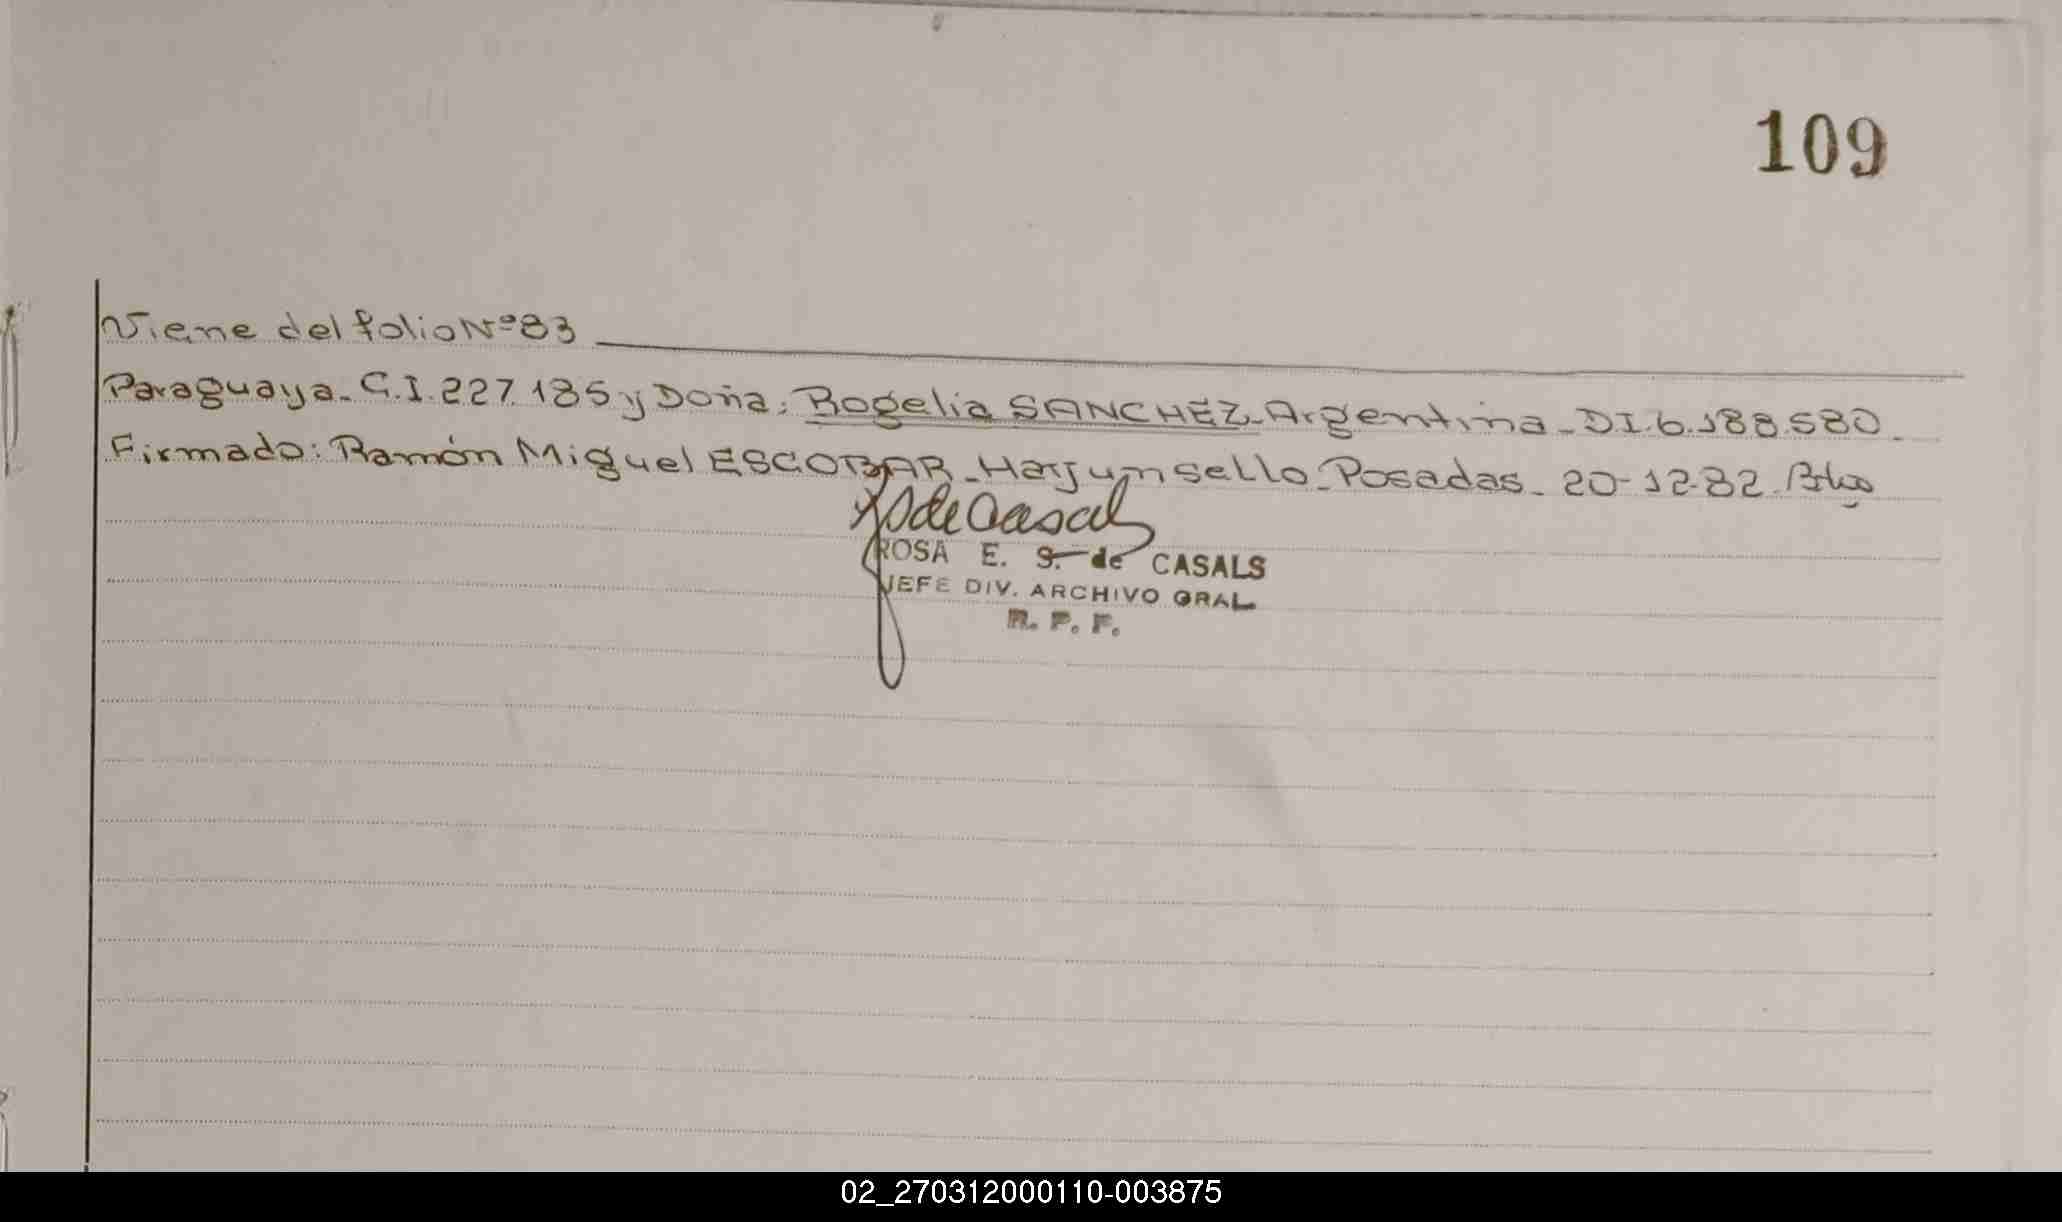 109
Viene del folio Nº 83
Paraguaya. C.I. 227.185 y Doña: Rogelia SANCHEZ. Argentina. DI. 6.188.580.
Firmado: Ramón Miguel ESCOBAR. Hay un sello. Posadas. 20-12-82.
RS de Casals
ROSA E. S. de CASALS
JEFE DIV. ARCHIVO GRAL
R. P. P.
02_270312000110-003875